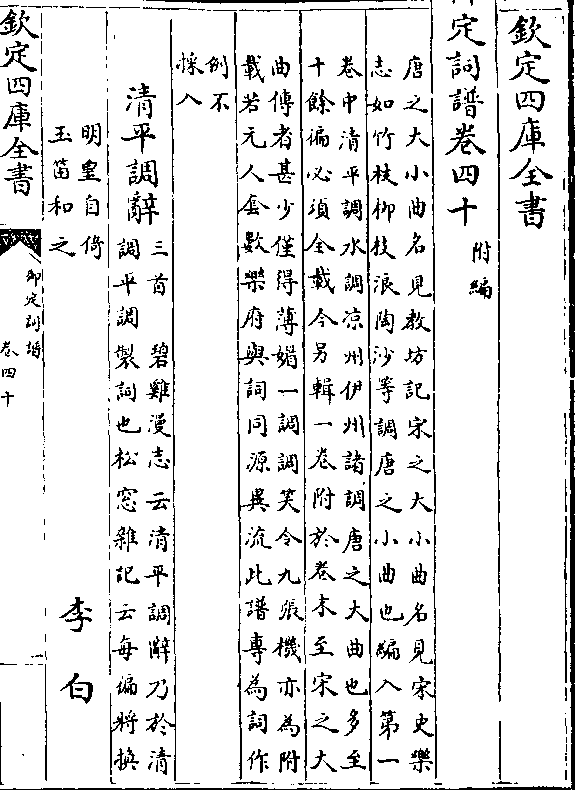 欽定四庫全書
定詞譜卷四十
附編
唐之大小曲名見教坊記宋之大小曲名見宋史樂
志如竹枝柳枝浪陶沙等調唐之小曲也編入第一
卷中清平調水調凉州伊州諸調唐之大曲也多至
十餘徧必須全載今另輯一卷附於卷末至宋之大
曲傳者甚少僅得薄媚一調調笑令九張機亦為附
載若元人套數樂府與詞同源異流此譜專為詞作
例不
採入
清平調辭
三首 碧雞漫志云清平調辭乃於清
調平調製詞也松窓雜記云每徧將換
李白
明皇自倚
玉笛和之
欽定四庫全書
御定詞譜
卷四十